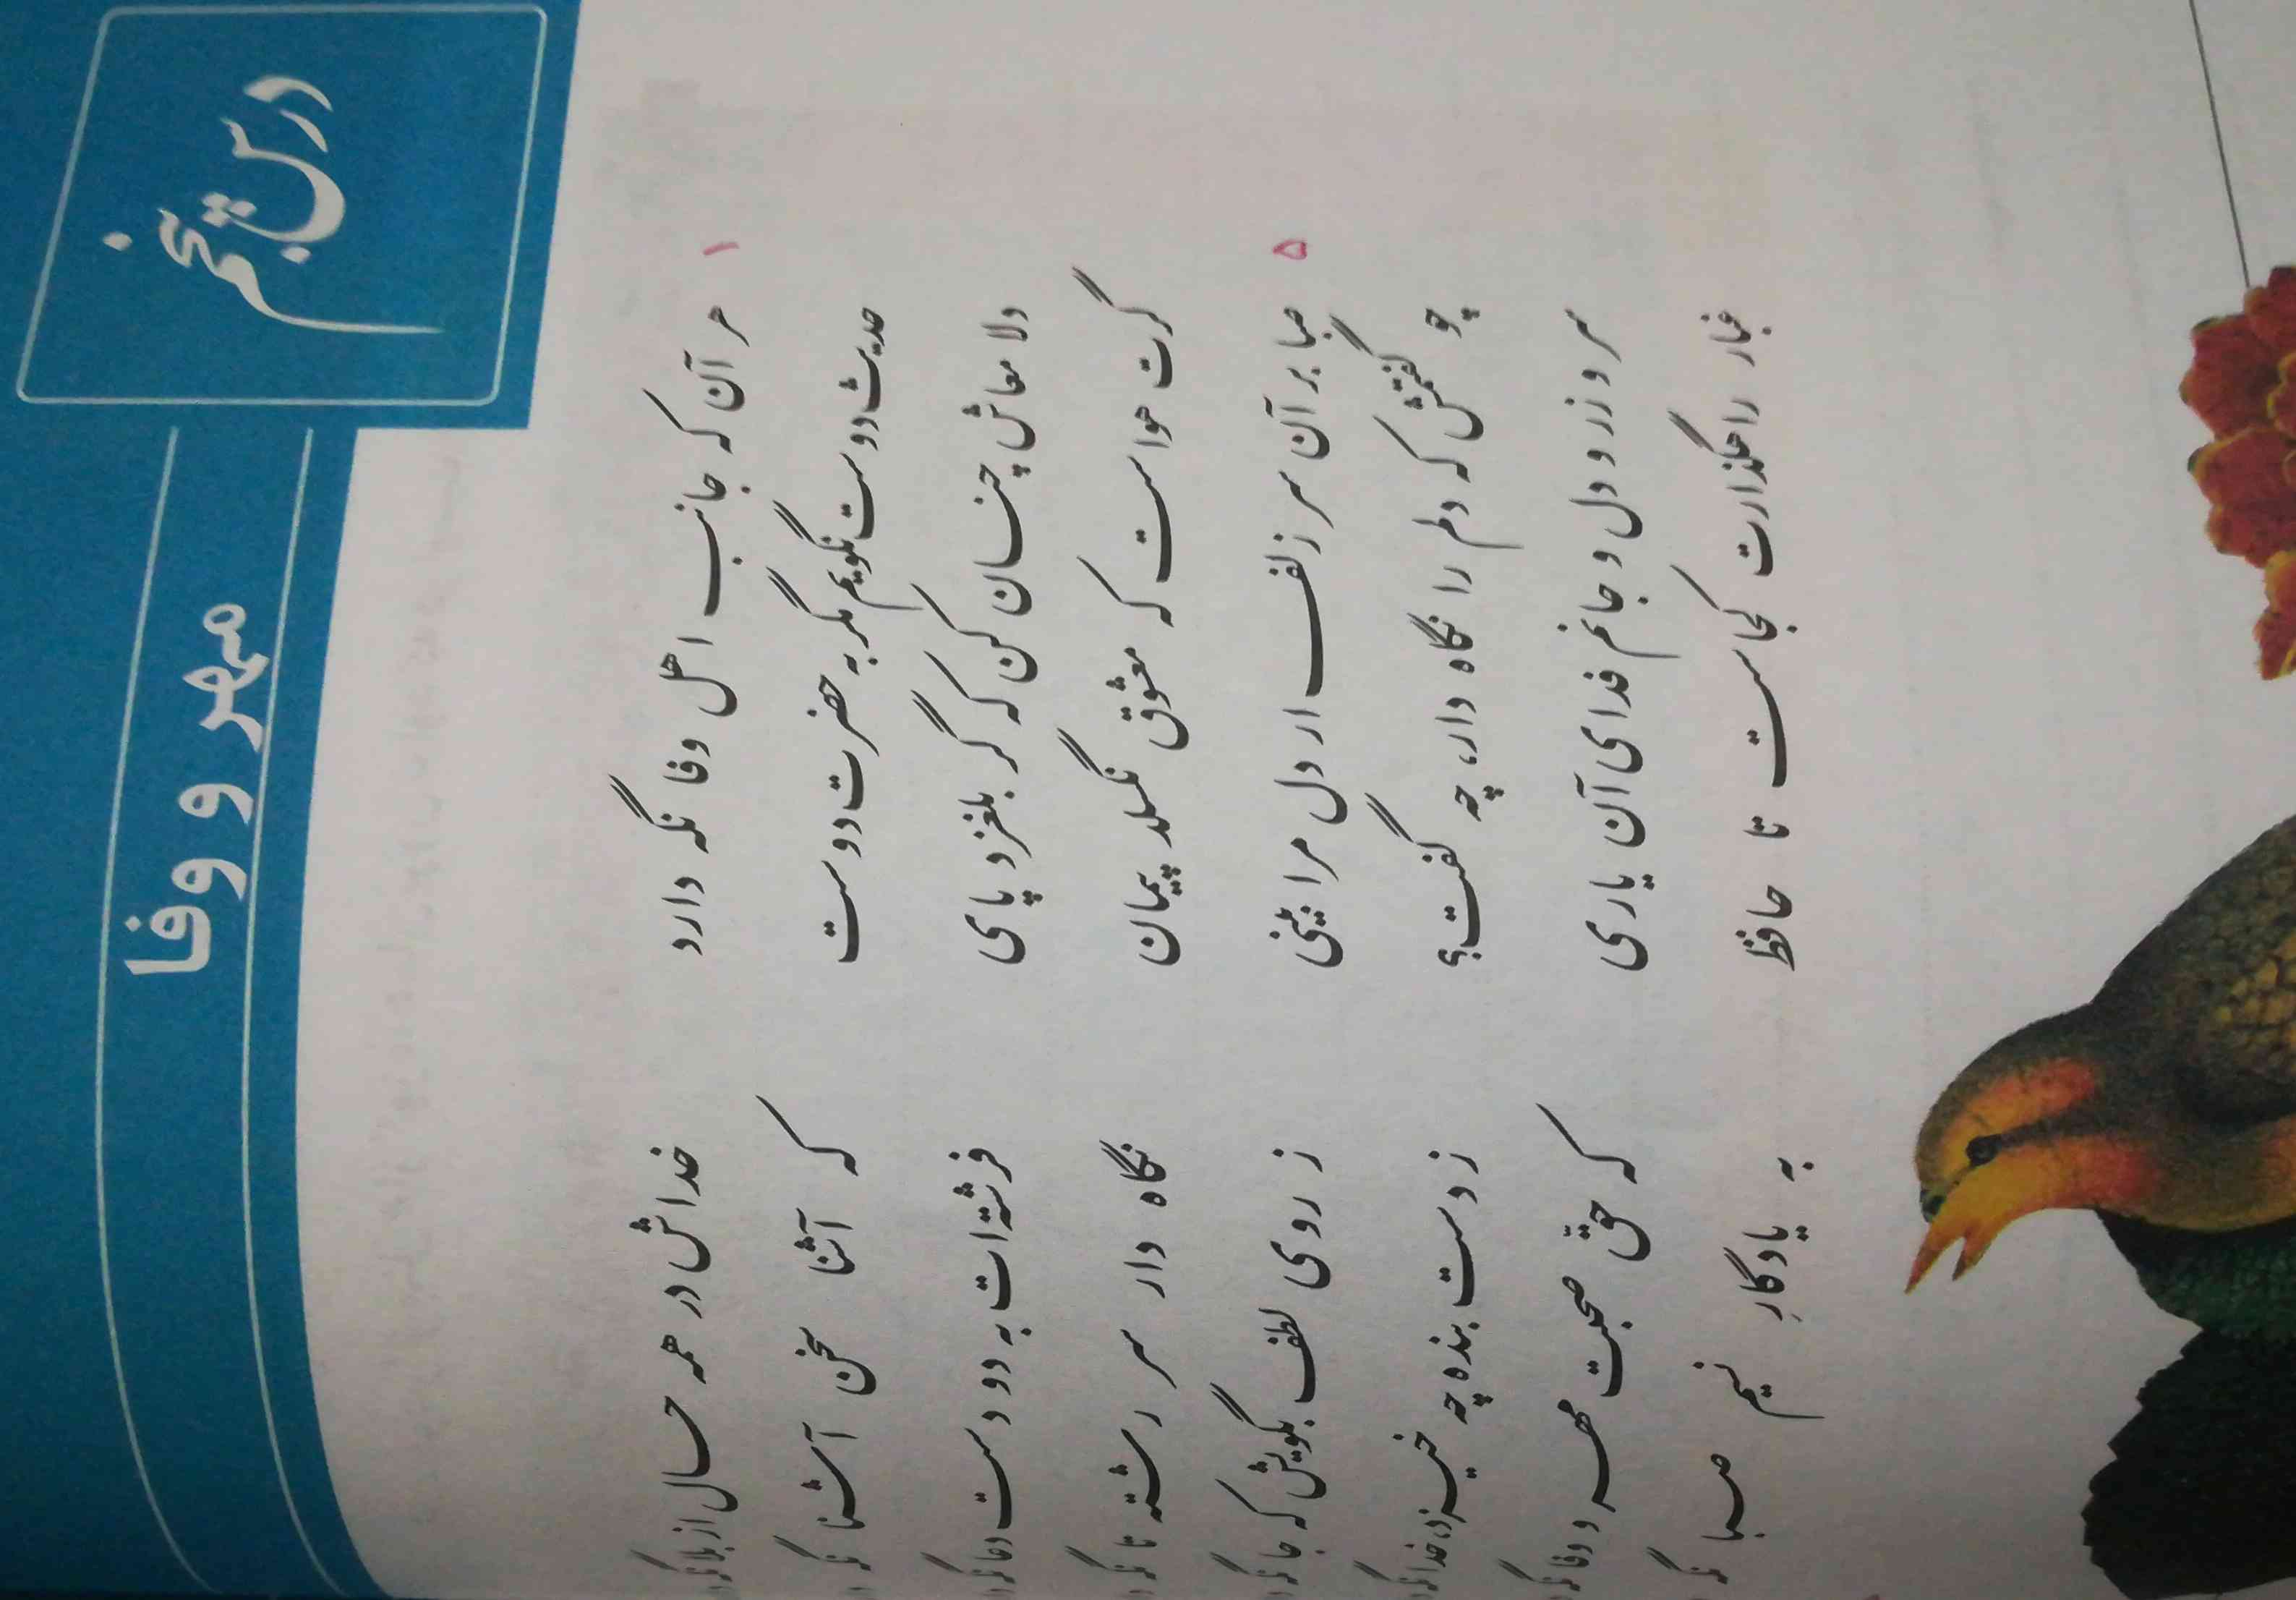 درس پنجم
مهر و وفا
۱ هر آن که جانب اهل وفا نگه دارد خداش در همه حال از بلا نگه
حدیث دوست نگویم مگر به حضرت دوست که آشنا سخن آشنا نگه
دلا معاش چنان کن که گر بلغزد پای فرشته‌ات به دو دست دعا نگه
گرت هواست که معشوق نگسلد پیمان نگاه دار سر رشته تا نگه
۵ صبا بر آن سر زلف ار دل مرا بینی ز روی لطف بگویش که جا نگه
چو گفتمش که دلم را نگاه دار، چه گفت؟ ز دست بنده چه خیزد، خدا نگه
سر و زر و دل و جانم فدای آن یاری که حقّ صحبت مهر و وفا نگه
غبار راهگذارت کجاست تا حافظ به یادگارِ نسیم صبا نگه